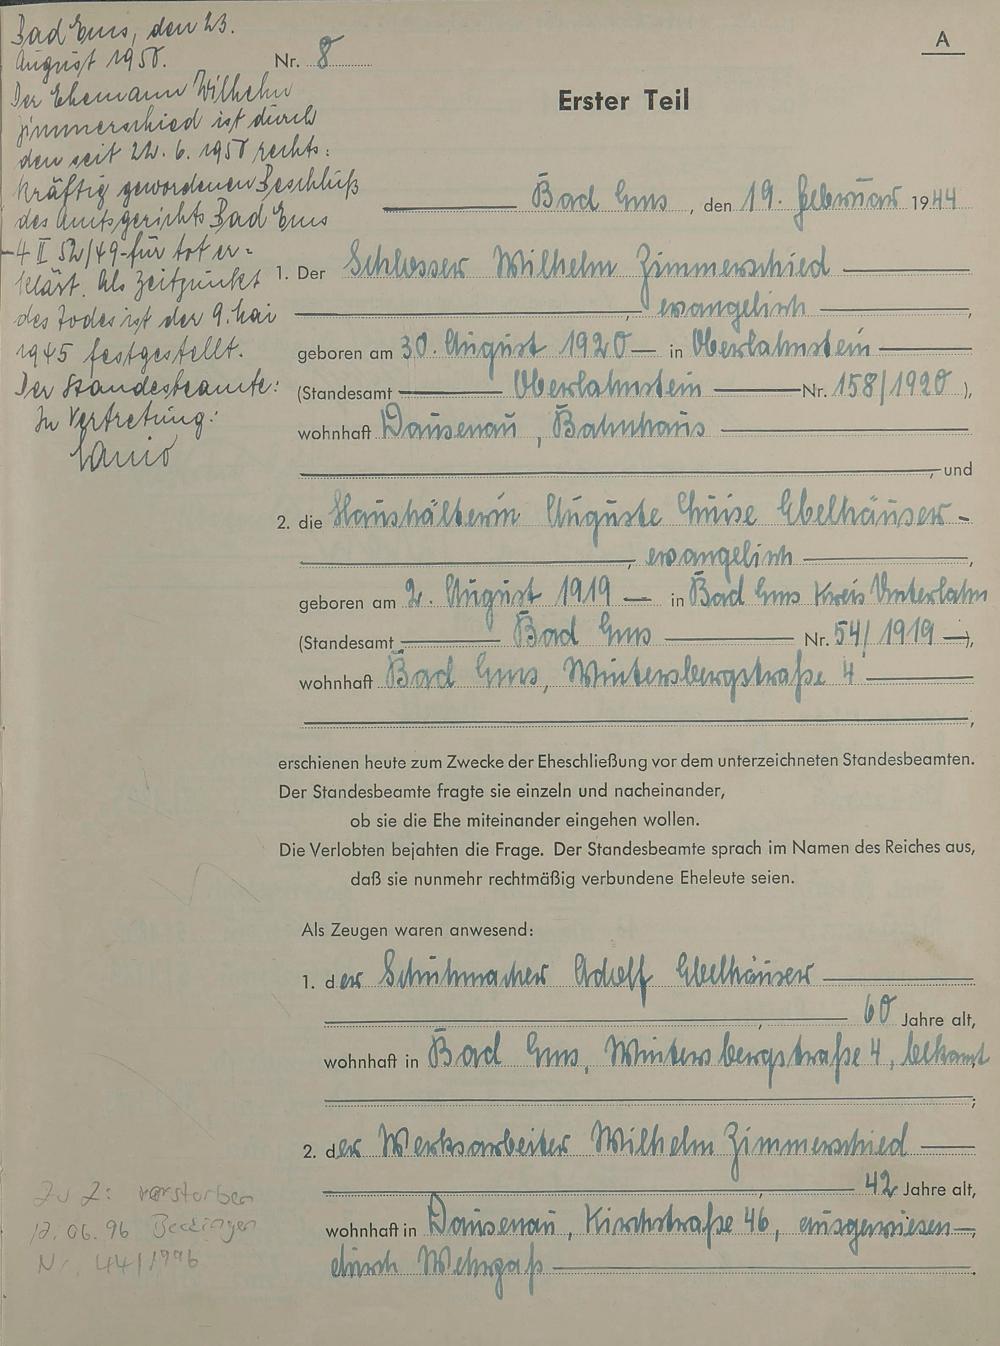 Bad Ems, den 23.
August 1950.
Der Ehemann Wilhelm
Zimmerschied ist durch
den seit 22. 6. 1950 rechts:
kräftig gewordenen Beschluß
des Amtsgerichts Bad Ems
-4 II 52/49-für tot er=
klärt. Als Zeitpunkt
des Todes ist der 9. Mai
1945 festgestellt.
Der Standesbeamte:
In Vertretung:
A
Nr. 8
Erster Teil
Bad Ems, den 19. Februar 1944
1. Der Schlosser Wilhelm Zimmerschied
, evangelisch,
geboren am 30. August 1920 in Oberlahnstein
(Standesamt Oberlahnstein Nr. 158/1920),
wohnhaft Dausenau, Bahnhaus
, und
2. die Haushälterin Auguste Luise Ebelhäuser -
, evangelisch,
geboren am 2. August 1919 in Bad Ems Kreis Unterlahn
(Standesamt Bad Ems Nr. 54/1919),
wohnhaft Bad Ems, Wintersbergstraße 4
,
erschienen heute zum Zwecke der Eheschließung vor dem unterzeichneten Standesbeamten.
Der Standesbeamte fragte sie einzeln und nacheinander,
ob sie die Ehe miteinander eingehen wollen.
Die Verlobten bejahten die Frage. Der Standesbeamte sprach im Namen des Reiches aus,
daß sie nunmehr rechtmäßig verbundene Eheleute seien.
Als Zeugen waren anwesend:
1. der Schuhmacher Adolf Ebelhäuser
, 60 Jahre alt,
wohnhaft in Bad Ems, Wintersbergstraße 4, bekannt
;
2. der Werksarbeiter Wilhelm Zimmerschied
, 42 Jahre alt,
wohnhaft in Dausenau, Kirchstraße 46, ausgewiesen,
durch Wehrpaß.
Zu 2: verstorben
12.06.96
Nr. 44/1996